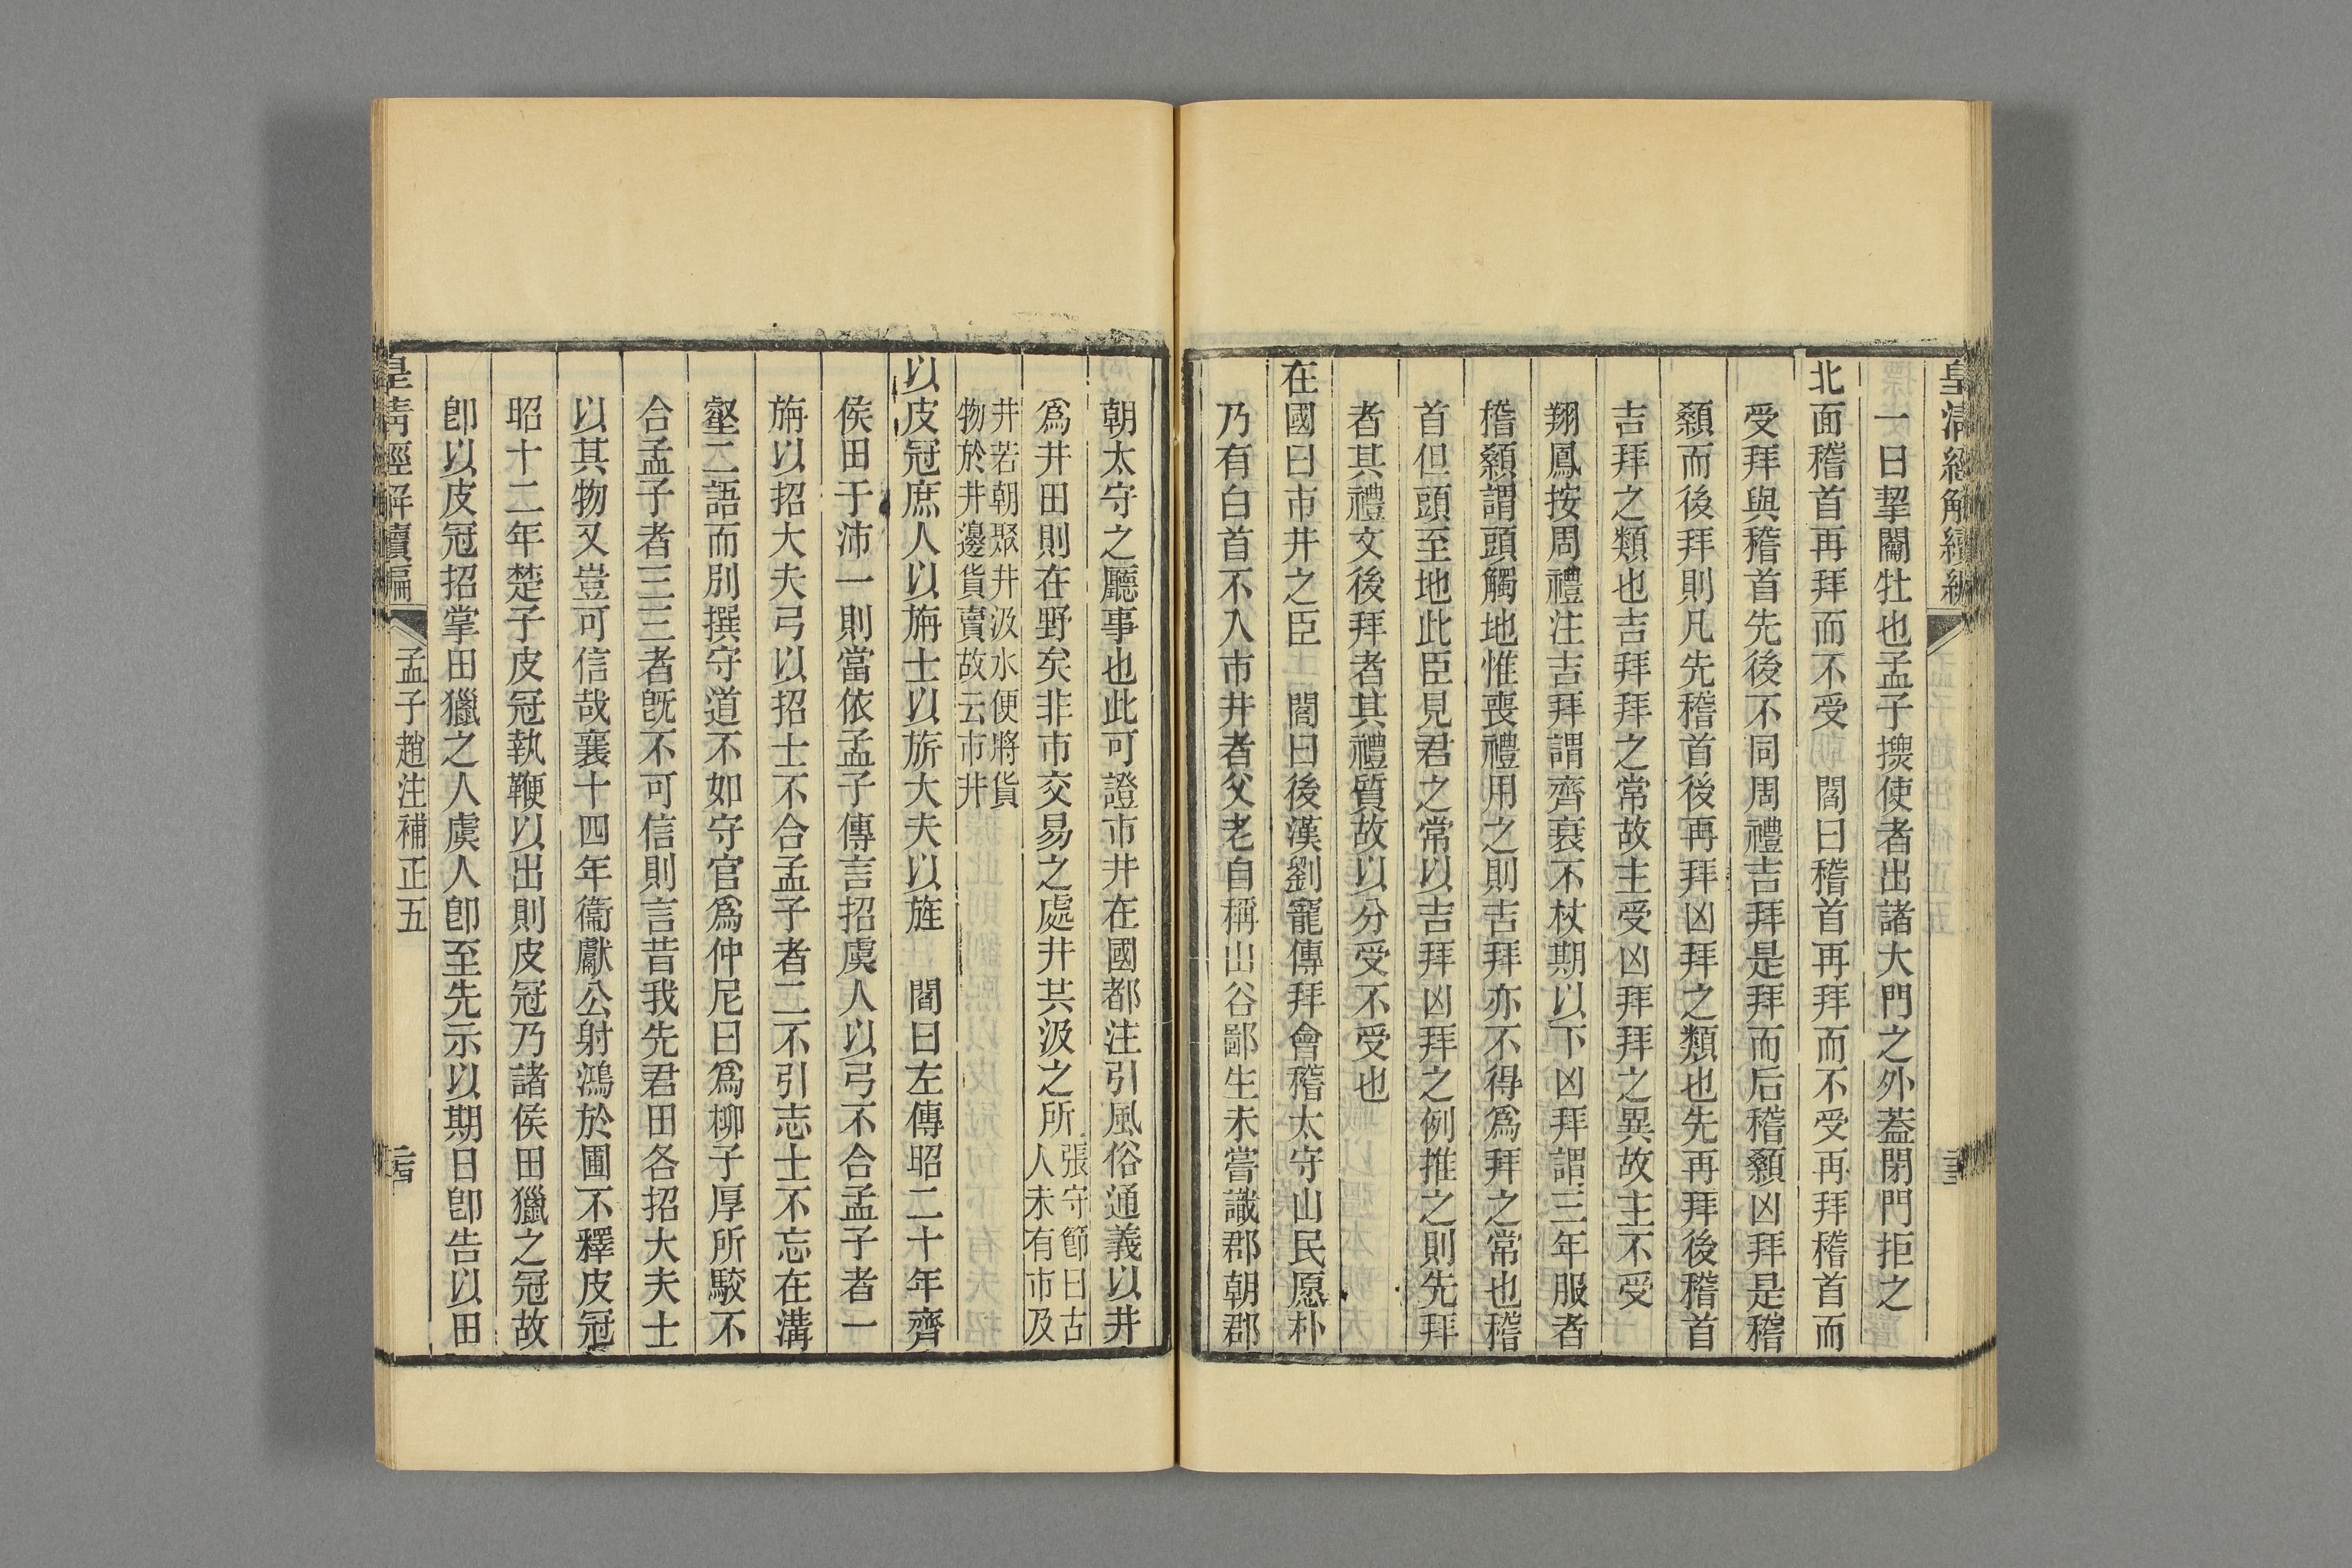 皇清經解續編
一曰挈闔牡也孟子摽使者出諸大門之外蓋閉門拒之
北面稽首再拜而不受　閻曰稽首再拜而不受再拜稽首而
受拜與稽首先後不同周禮吉拜是拜而后稽顙凶拜是稽
顙而後拜則凡先稽首後再拜凶拜之類也先再拜後稽首
吉拜之類也吉拜拜之常故主受凶拜拜之異故主不受
翔鳳按周禮注吉拜謂齊衰不杖期以下凶拜謂三年服者
稽顙謂頭觸地惟喪禮用之則吉拜亦不得爲拜之常也稽
首但頭至地此臣見君之常以吉拜凶拜之例推之則先拜
者其禮文後拜者其禮質故以分受不受也
在國曰市井之臣　閻曰後漢劉寵傳拜會稽太守山民愿朴
乃有白首不入市井者父老自稱山谷鄙生未嘗識郡朝郡
朝太守之廳事也此可證市井在國都注引風俗通義以井
爲井田則在野矣非市交易之處井共汲之所張守節曰古人未有市及
井若朝聚井汲水便將貨物於井邊貨賣故云市井
以皮冠庶人以旃士以旂大夫以旌　閻曰左傳昭二十年齊
侯田于沛一則當依孟子傳言招虞人以弓不合孟子者一
旃以招大夫弓以招士不合孟子者二不引志士不忘在溝
壑二語而別撰守道不如守官爲仲尼曰爲柳子厚所駮不
合孟子者三三者旣不可信則言昔我先君田各招大夫士
以其物又豈可信哉襄十四年衞獻公射鴻於圃不釋皮冠
昭十二年楚子皮冠執鞭以出則皮冠乃諸侯田獵之冠故
卽以皮冠招掌田獵之人虞人卽至先示以期日卽告以田
皇清經解續編
孟子趙注補正五